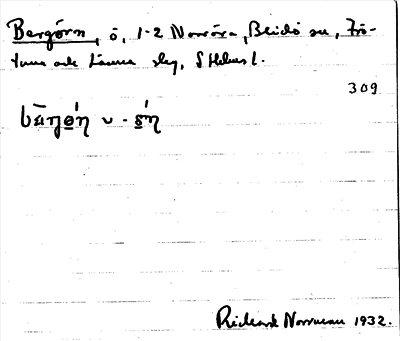 Bergörn, ö, 1-2 Norröra, Blidö sn, Frö-
tuna och Länna skg, S Hlms l.
309
Richard Norrman 1932.